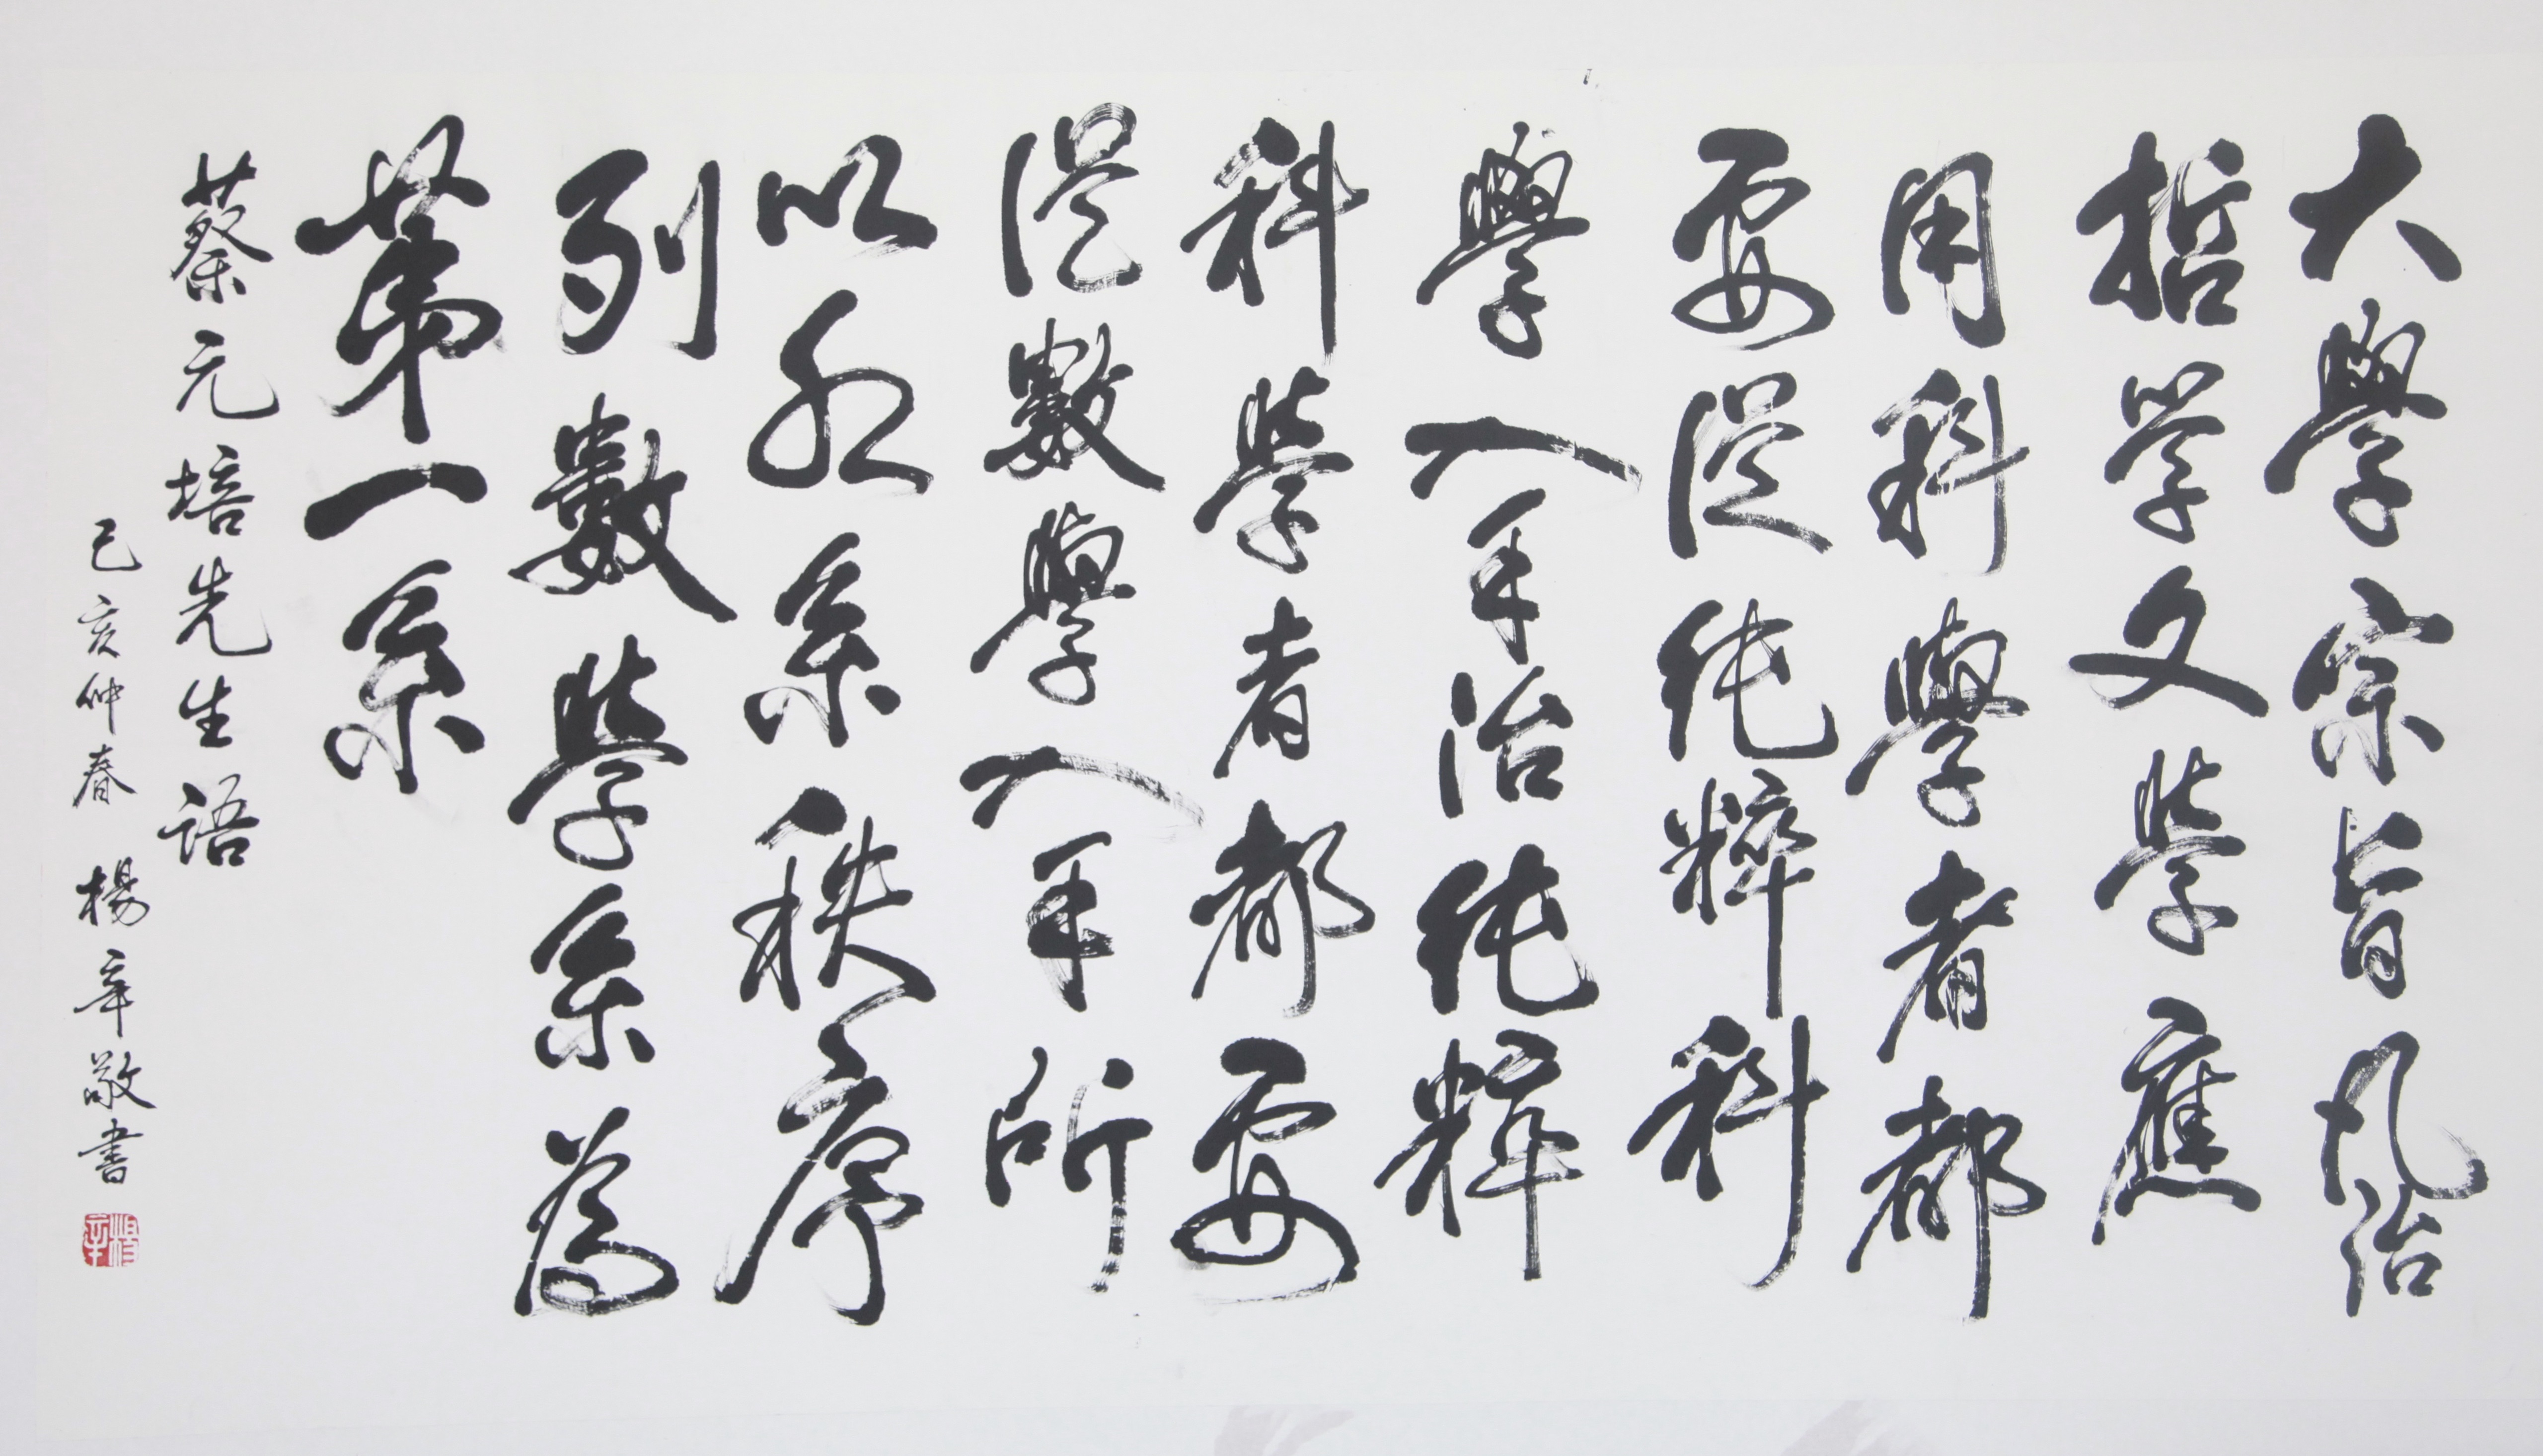 大學宗旨凡治
哲学文學應
用科學者都
要從純粹科
學入手治純粹
科學者都要
從數學入手所
以北系秩序
列數學系為
第一系
蔡元培先生語
己亥仲春 楊辛敬書
楊辛